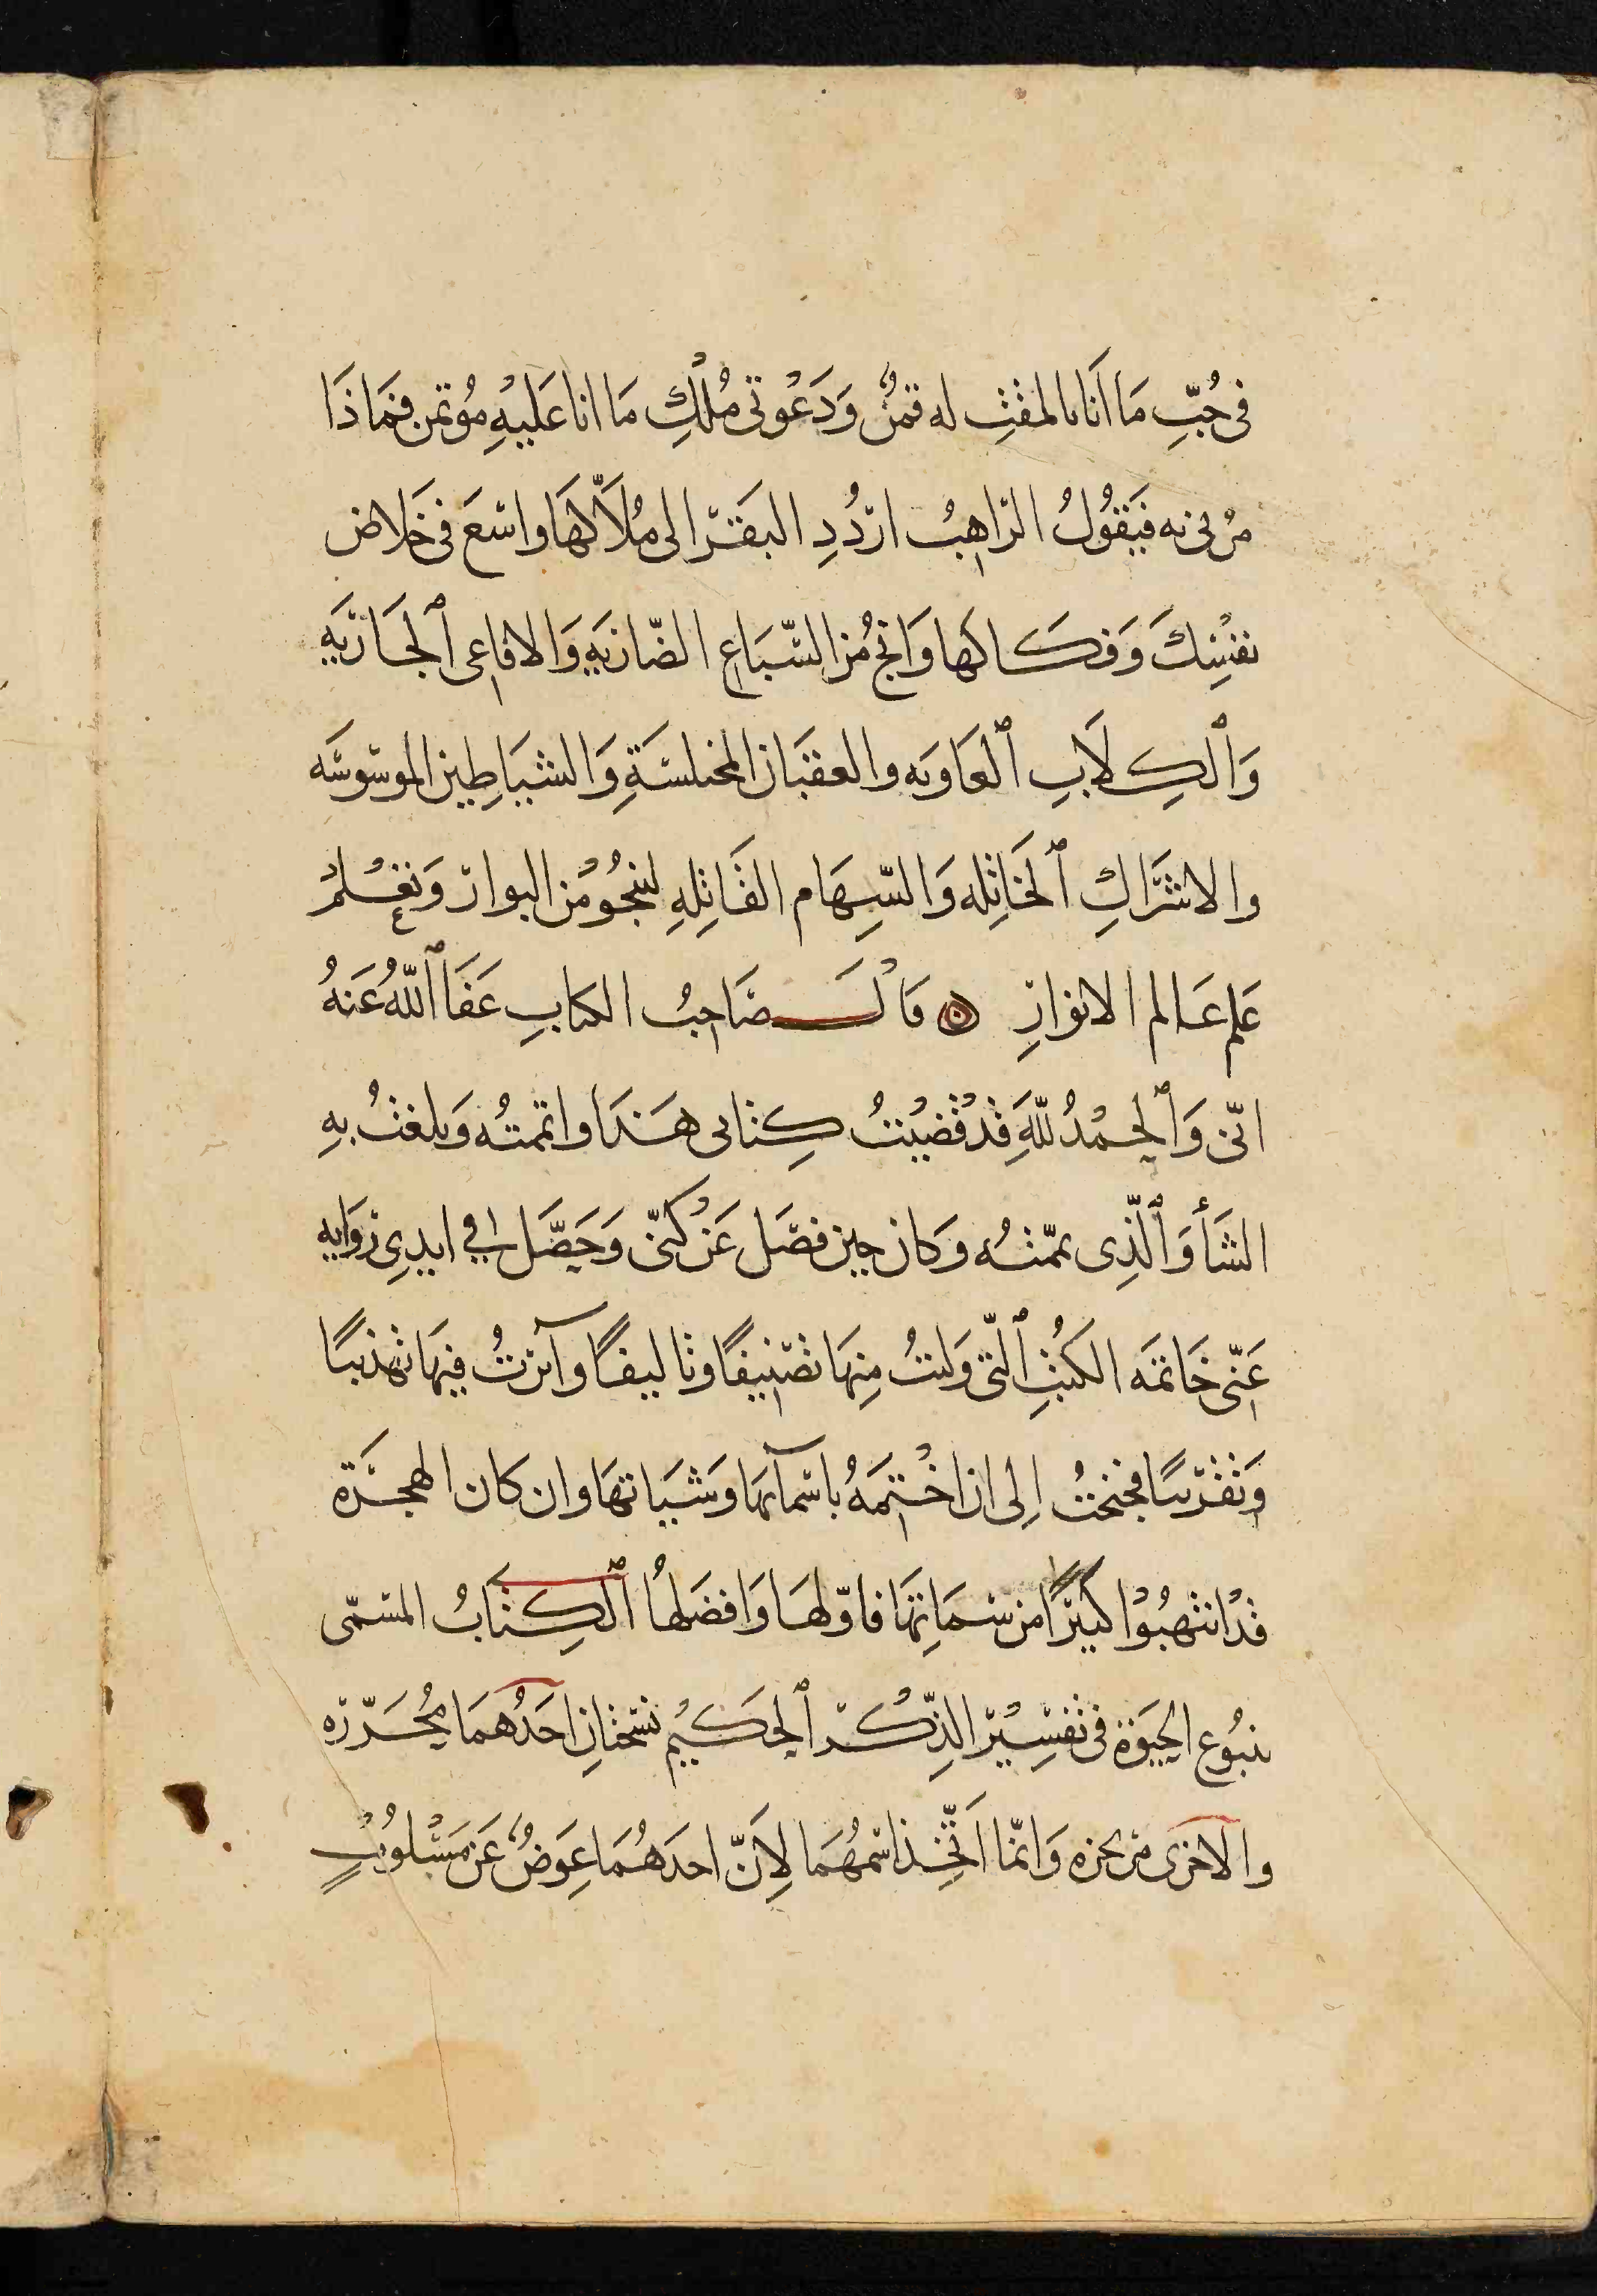 فى حُبّ مَا اَنَا بالمفِت له قمنٌ وَدَعْوتى مُلْكِ مَا انا عَليْهِ مُوتمن فمَاذَا
فَيَقُولُ الرّاهِبُ ارْدُدِ البَقَر الى مُلاّكهَا واسْعَ فى خَلاص
نفسِْكَ وَفكَاكها وَانج مُن السّبَاعِ الضّاريَةِ وَالافاعى ٱلجَاريَه
وَٱلكِلَابِ ٱلعَاويَه والعقبَان المختلسَةِ وَالشيَاطِين الموسْوسَه
والاشرَاكِ ٱلخَاتِله وَالسّهَام القَاتِلهِ لتنجُو مْن البوار وَتعْلمُ
عَلم عَالم الانوَارِ قَالَ صَاحِبُ الكتابِ عَفَا ٱللّهُ عَنهُ
انّى وَٱلحمْدُ لِلّهِ قدْ قْضيْتُ كِتَابى هَذا واتممتُه وَبلغتُ بهِ
الشَأوَ ٱلّذِى يممّتُه وَكان حِين فصَل عَنْ كنّى وَحَصَّل فى ايدِى رُوَايه
عَنّى خَاتمَه الكتُبِ ٱلتّى وَلِيتُ مِنهَا تصْنِيفًا وتاليفًا وآثرتُ فِيهَا تهذيبًا
وَتقْريبًا فجنحتُ اِلى ان اخْتِمَهُ باسْمآئهَا وَشيَاتهَا وان كان الهجَرَة
قدْ انتهبُوْا كثيرًا من سمَاتِهَا فاوّلهَا وَافضَلهُا ٱلكِتَابُ المسَمّى
ينبُوع الحيَوة فى تفسِيْر الذِّكْر ٱلحكَيْم نسْختَانِ احَدُهمَا مُحَرّرَه
والاخرى مزبحزه وَانمّا اَتّخِذ اسْمهُمَا لِاَنّ احدَهُمَا عِوَضٌ عَن مَسْلُوبٍ